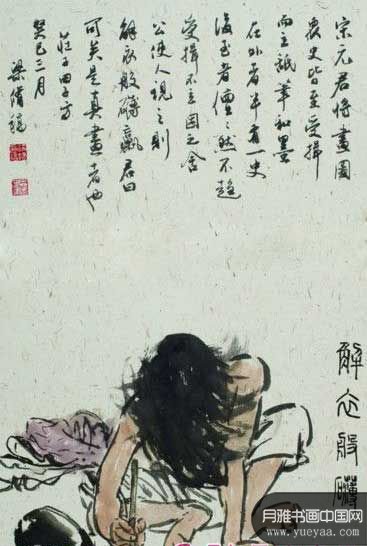 宋元君將畫圖
衆史皆至受揖
而立舐筆和墨
在外者半有一史
後至者儃々然不趨
受揖不立因之舍
公使人視之則
解衣般礴臝君曰
可矣是真畫者也
莊子田子方
癸巳三月
梁
解衣般礴
月雅书画中国网
www.yueyaa.com